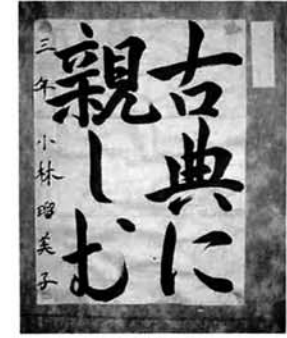 古典に
親しむ
三年 小林瑠美子